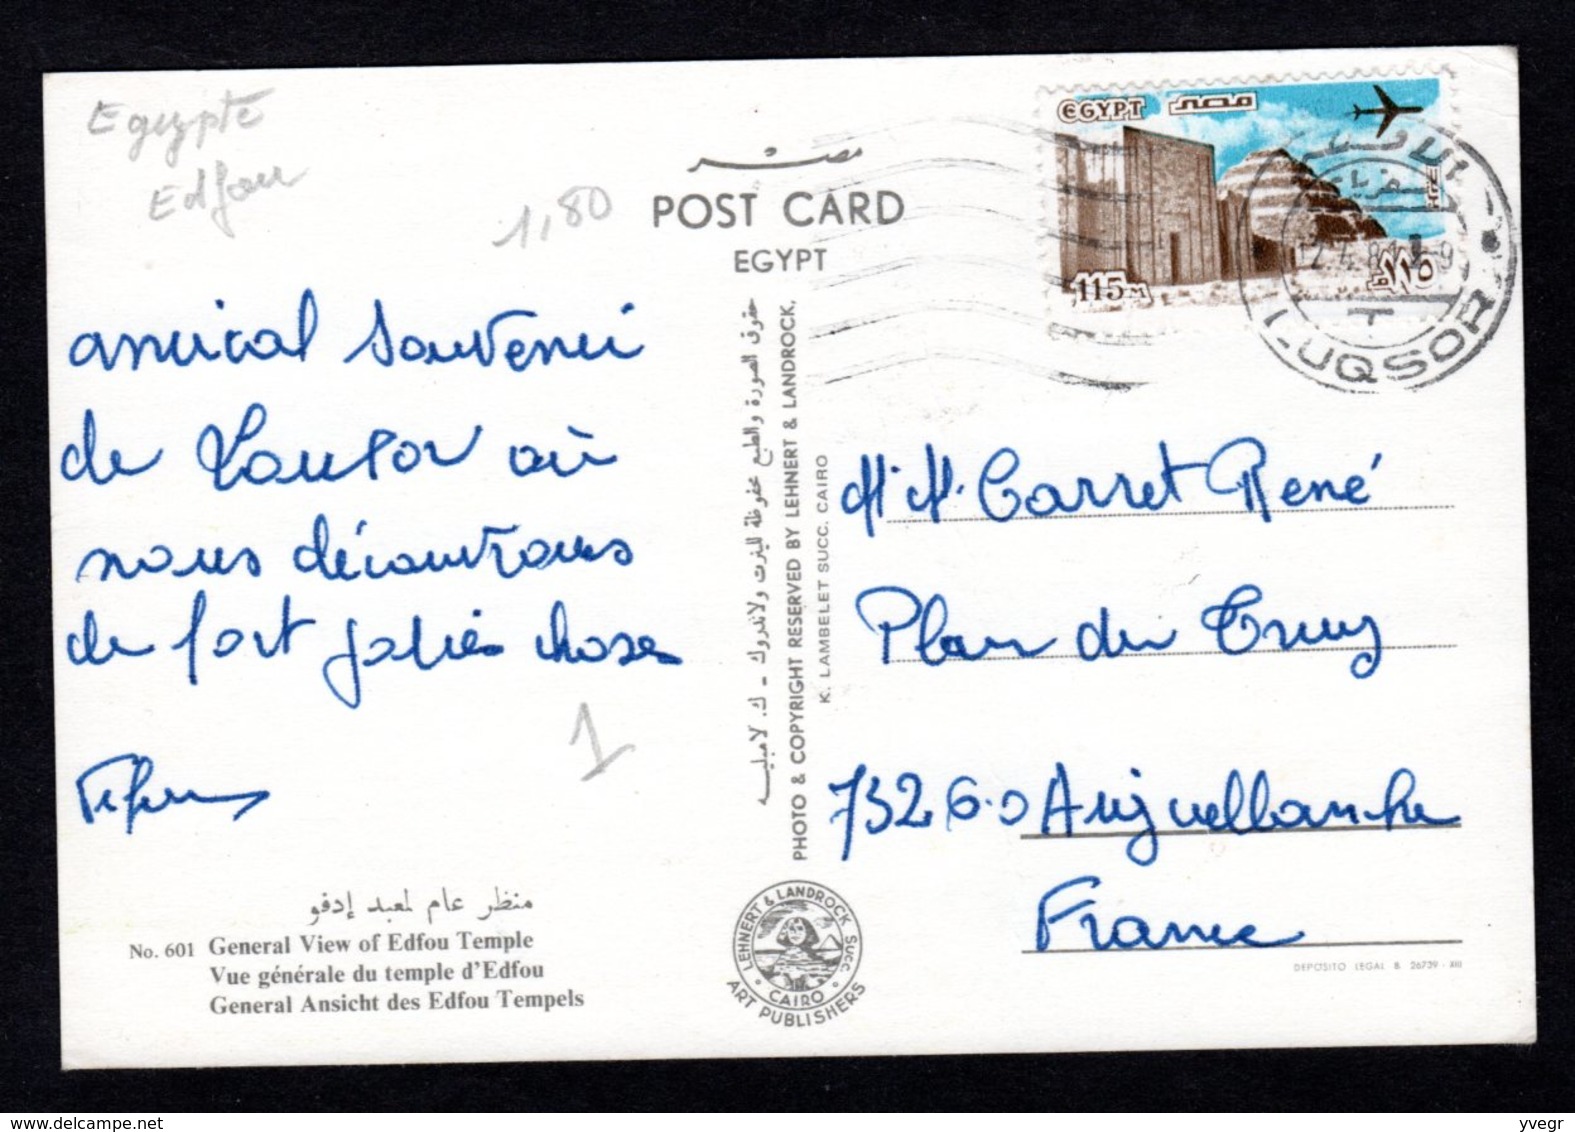 Egypte
Edfou
1,80
مصر
POST CARD
EGYPT
amical souvenir
de Louxor où
nous découvrons
de fort jolies choses
No. 601 General View of Edfou Temple
منظر عام لمعبد إدفو
Vue générale du temple d'Edfou
General Ansicht des Edfou Tempels
1
حقوق الصورة والطبع محفوظة للينرت ولاندروك - ك. لامبليه
PHOTO & COPYRIGHT RESERVED BY LEHNERT & LANDROCK,
K. LAMBELET SUCC. CAIRO
LEHNERT & LANDROCK SUCC.
CAIRO
ART PUBLISHERS
EGYPT مصر
115M
١١٥
LUQSOR
T
M. M. Carret René
Plan du Truy
73260 Aigueblanche
France
DEPOSITO LEGAL B. 26739 - XIII
yvegr